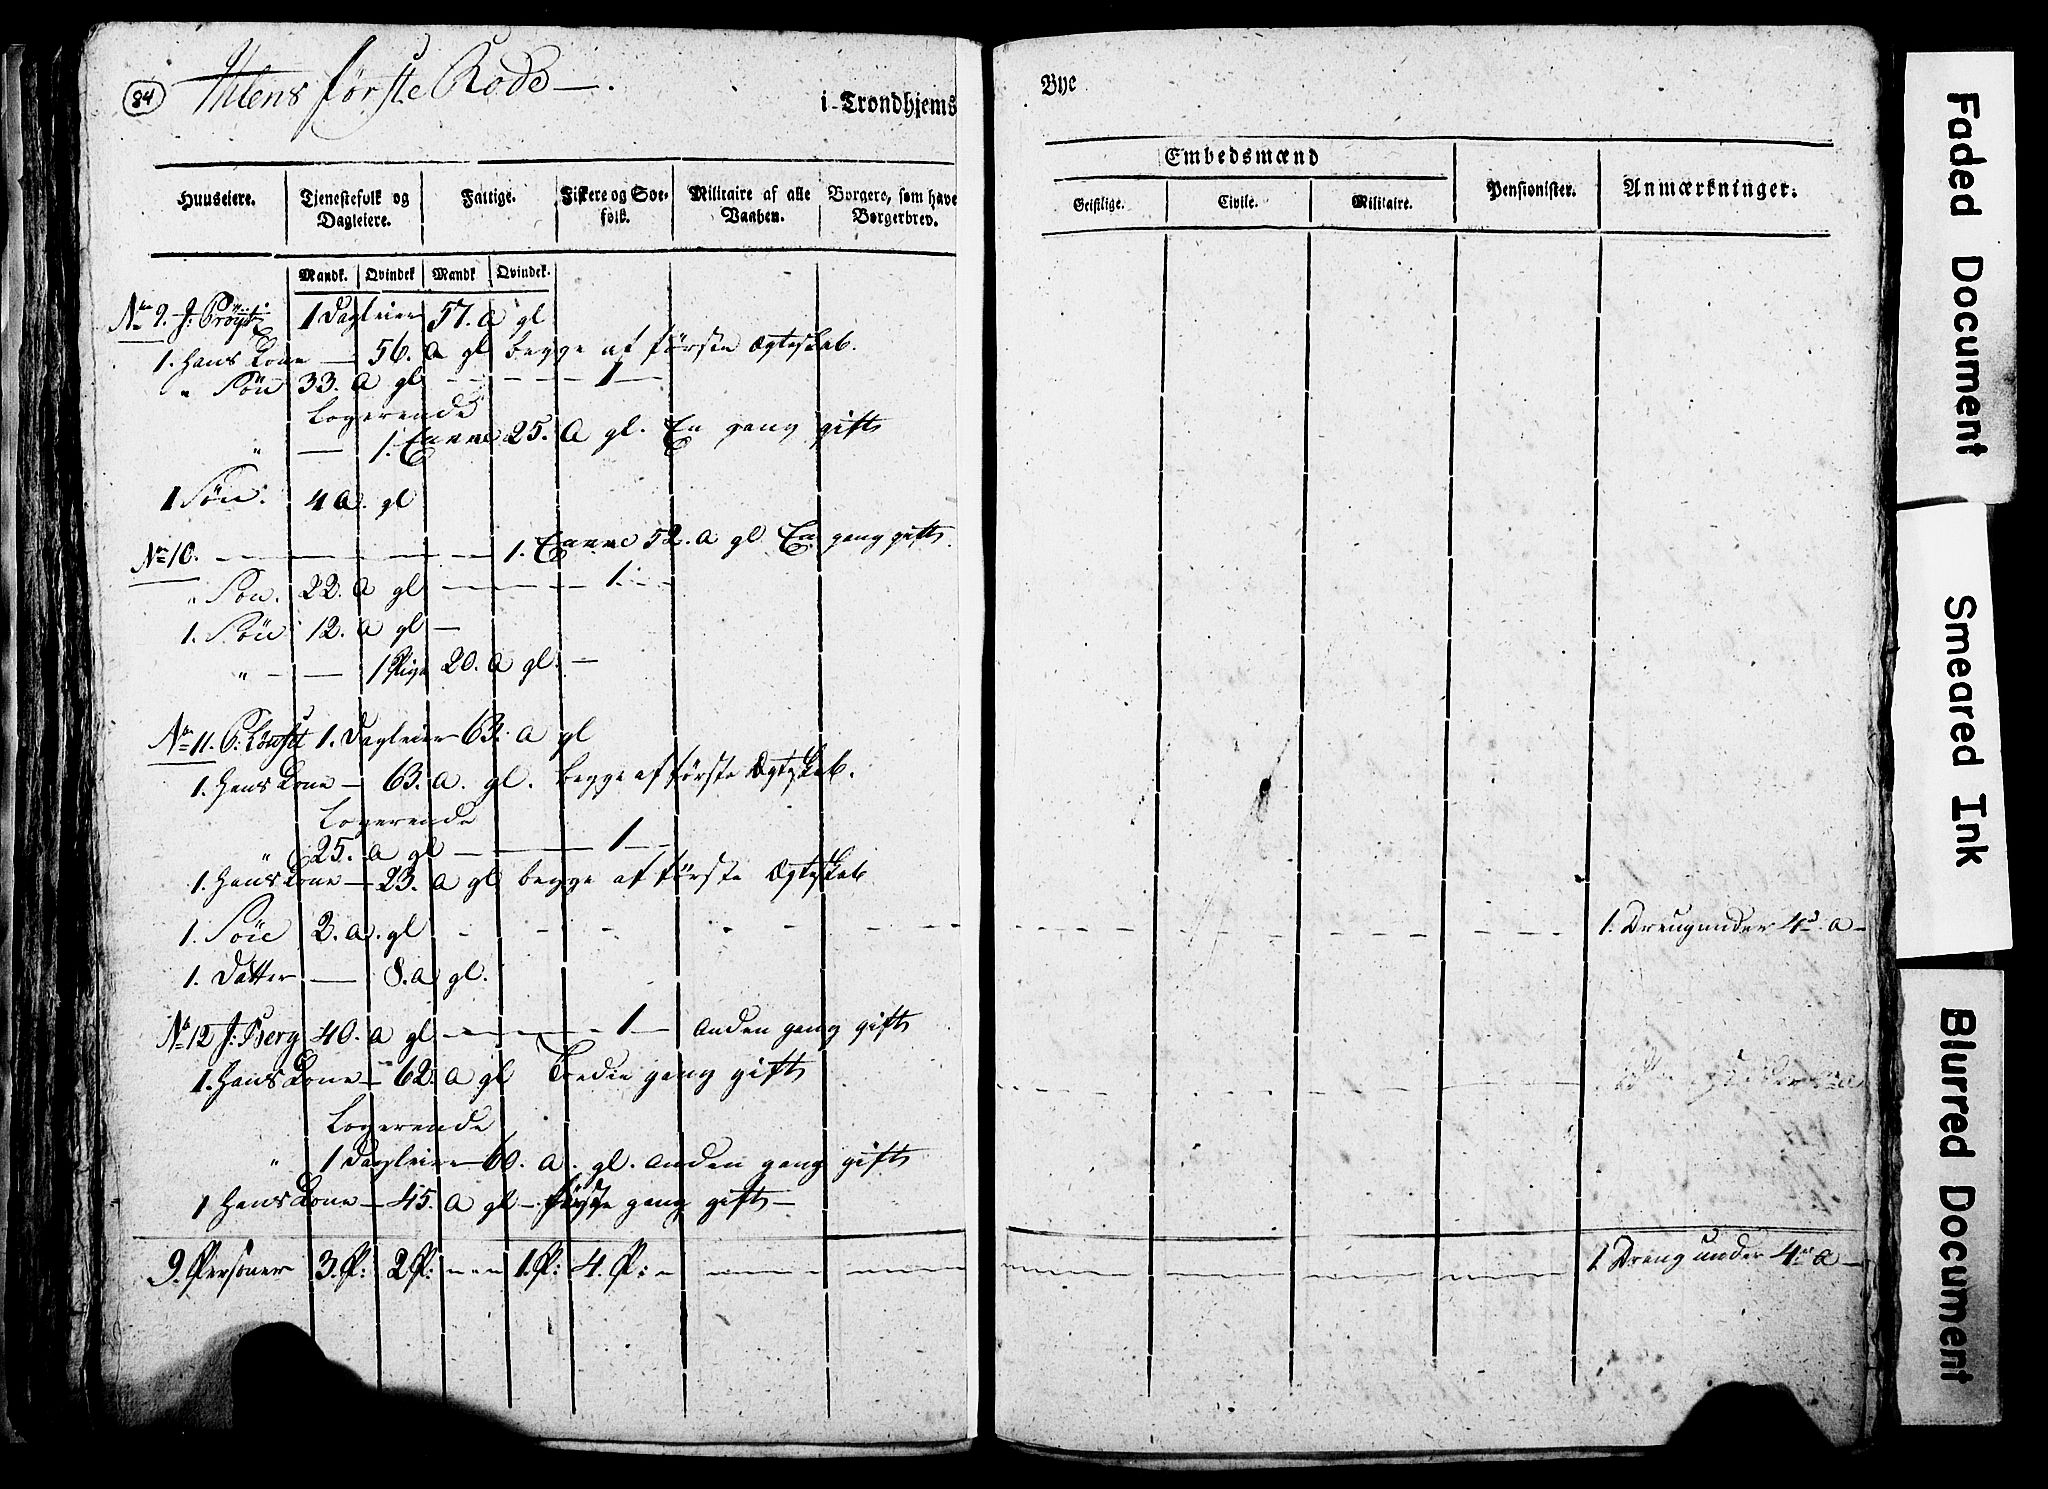 84
Ihlens første Rode
i Trondhjems
Bye
Huuseiere.
Tjenestefolk og Dagleiere.
Fattige.
Fiskere og Søe-folk.
Militaire af alle Vaaben.
Borgere, som have Borgerbrev.
Embedsmænd
Geistlige.
Civile.
Militaire.
Pensionister.
Anmærkninger.
Mandk. Qvindek Mandk Qvindek.
No 9. J: 1 Dagleier 57. a gl
1. Hans Kone — 56. a gl begge af første Ægteskab.
" Søn 33. a gl — — — — 1 —
Logerende
" — 1. Enke 25. a gl. En gang gift
1 Søn. 4 a. gl
No 10. — — — — — 1. Enke 52. a gl En gang gift.
" Søn. 22. a gl — — — 1. —
1. Søn 12. a gl —
" — — 1 Pige 20. a gl. —
No 11. P: 1. Dagleier 63. a gl
1. Hans Kone — 63. a. gl. begge af første Ægteskab.
Logerende
" 25. a gl — — 1 —
1. Hans Kone — 23. a gl begge af første Ægteskab
1. Søn 2. a. gl - - - - - - 1. Dreng under 4 a —
1. Datter — 8. a gl.
No 12 J: Berg 40. a gl — — — 1 — anden gang gift
1. Hans Kone — 62. a gl Tredie gang gift
Logerende
" 1 Dagleier 60. a. gl. anden gang gift
1 Hans Kone — 45. a gl — første gang gift —
9. Personer 3. P: 2 P: - - - 1. P: 4. P: - — — — — 1. Dreng under 4 a —
Faded Document
Smeared Ink
Blurred Document